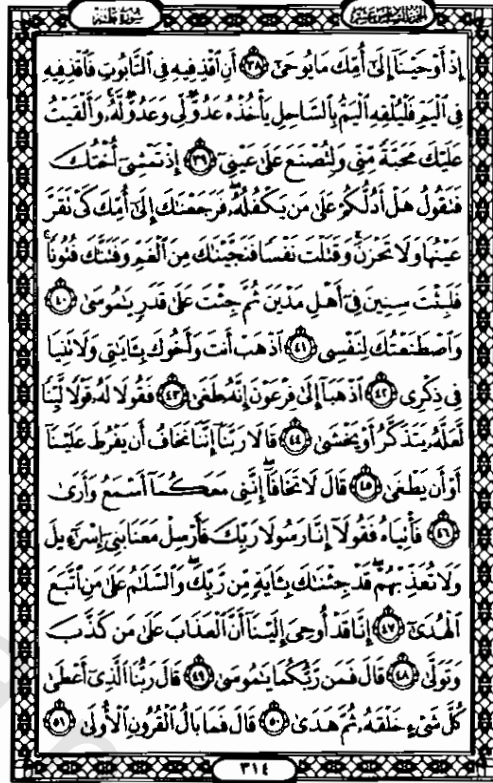 سُورَةُ طه الجُزءُ السَّادِسَ عَشَرَ
إِذْ أَوْحَيْنَآ إِلَىٰٓ أُمِّكَ مَا يُوحَىٰٓ ﴿٣٨﴾ أَنِ ٱقْذِفِيهِ فِى ٱلتَّابُوتِ فَٱقْذِفِيهِ
فِى ٱلْيَمِّ فَلْيُلْقِهِ ٱلْيَمُّ بِٱلسَّاحِلِ يَأْخُذْهُ عَدُوٌّ لِّى وَعَدُوٌّ لَّهُۥ ۚ وَأَلْقَيْتُ
عَلَيْكَ مَحَبَّةً مِّنِّى وَلِتُصْنَعَ عَلَىٰ عَيْنِىٓ ﴿٣٩﴾ إِذْ تَمْشِىٓ أُخْتُكَ
فَتَقُولُ هَلْ أَدُلُّكُمْ عَلَىٰ مَن يَكْفُلُهُۥ ۖ فَرَجَعْنَٰكَ إِلَىٰٓ أُمِّكَ كَىْ تَقَرَّ
عَيْنُهَا وَلَا تَحْزَنَ ۚ وَقَتَلْتَ نَفْسًا فَنَجَّيْنَٰكَ مِنَ ٱلْغَمِّ وَفَتَنَّٰكَ فُتُونًا ۚ
فَلَبِثْتَ سِنِينَ فِىٓ أَهْلِ مَدْيَنَ ثُمَّ جِئْتَ عَلَىٰ قَدَرٍ يَٰمُوسَىٰ ﴿٤٠﴾
وَٱصْطَنَعْتُكَ لِنَفْسِى ﴿٤١﴾ ٱذْهَبْ أَنتَ وَأَخُوكَ بِـَٔايَٰتِى وَلَا تَنِيَا
فِى ذِكْرِى ﴿٤٢﴾ ٱذْهَبَآ إِلَىٰ فِرْعَوْنَ إِنَّهُۥ طَغَىٰ ﴿٤٣﴾ فَقُولَا لَهُۥ قَوْلًا لَّيِّنًا
لَّعَلَّهُۥ يَتَذَكَّرُ أَوْ يَخْشَىٰ ﴿٤٤﴾ قَالَا رَبَّنَآ إِنَّنَا نَخَافُ أَن يَفْرُطَ عَلَيْنَآ
أَوْ أَن يَطْغَىٰ ﴿٤٥﴾ قَالَ لَا تَخَافَآ ۖ إِنَّنِى مَعَكُمَآ أَسْمَعُ وَأَرَىٰ
﴿٤٦﴾ فَأْتِيَاهُ فَقُولَآ إِنَّا رَسُولَا رَبِّكَ فَأَرْسِلْ مَعَنَا بَنِىٓ إِسْرَٰٓءِيلَ
وَلَا تُعَذِّبْهُمْ ۖ قَدْ جِئْنَٰكَ بِـَٔايَةٍ مِّن رَّبِّكَ ۖ وَٱلسَّلَٰمُ عَلَىٰ مَنِ ٱتَّبَعَ
ٱلْهُدَىٰٓ ﴿٤٧﴾ إِنَّا قَدْ أُوحِىَ إِلَيْنَآ أَنَّ ٱلْعَذَابَ عَلَىٰ مَن كَذَّبَ
وَتَوَلَّىٰ ﴿٤٨﴾ قَالَ فَمَن رَّبُّكُمَا يَٰمُوسَىٰ ﴿٤٩﴾ قَالَ رَبُّنَا ٱلَّذِىٓ أَعْطَىٰ
كُلَّ شَىْءٍ خَلْقَهُۥ ثُمَّ هَدَىٰ ﴿٥٠﴾ قَالَ فَمَا بَالُ ٱلْقُرُونِ ٱلْأُولَىٰ ﴿٥١﴾
٣١٤